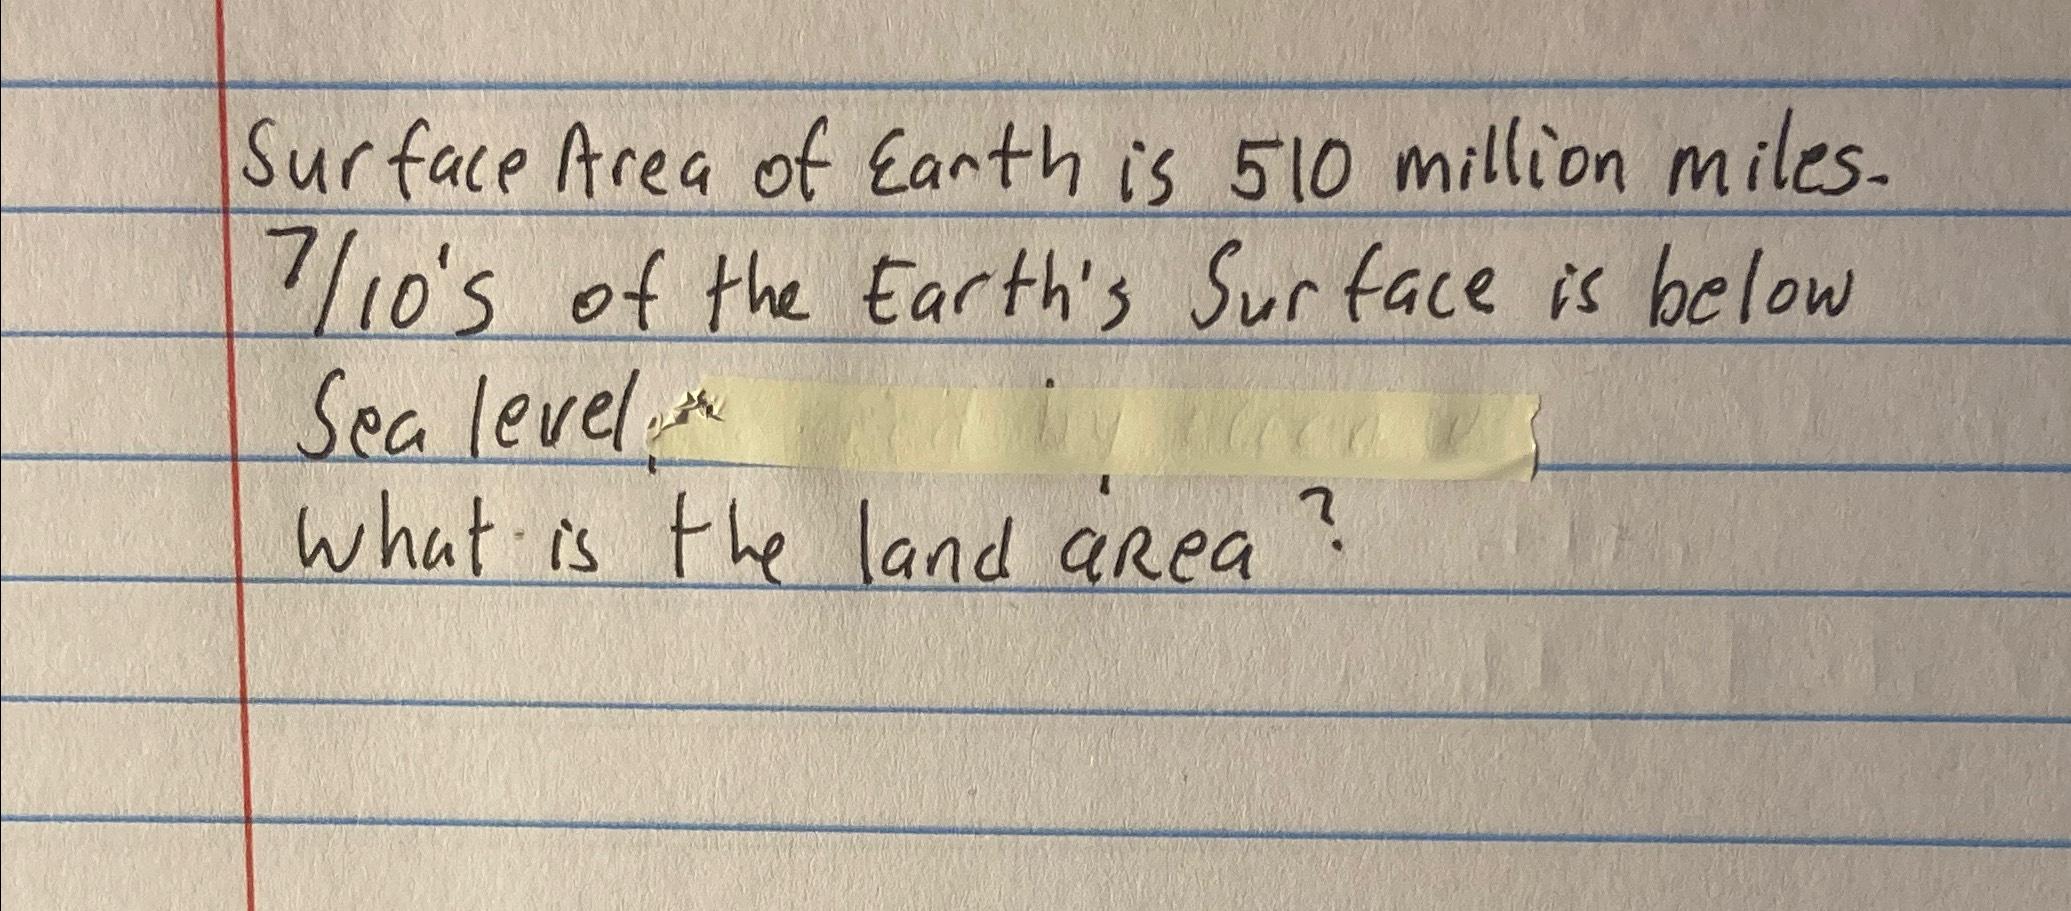 Surface Area of Earth is 510 million miles.
7/10's of the Earth's Surface is below
Sea level
What is the land area?